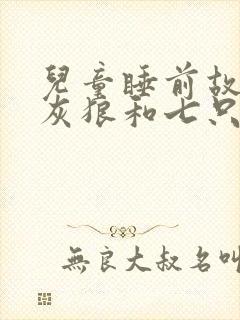 兒童睡前故
灰狼和七只
無良大叔名叫